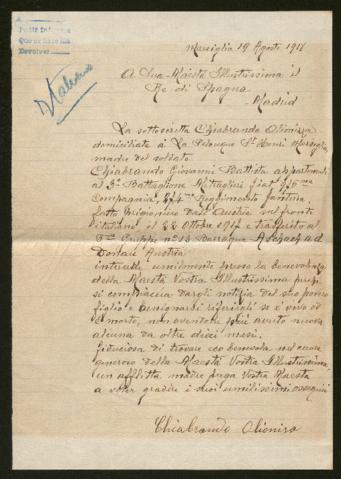 Pedir Informes
Devolver
Italiano
Marsiglia 19 Agosto 1918
A Sua Maestà Illustrissima il
Re di Spagna
Madrid
La sottoscritta Chiabrando
domiciliata à La St Henri Marsiglia
madre del soldato
Chiabrando Giovanni Battista appartenente
al 3º Battaglione Mitraglieri Fiat
Compagnia, Reggimento fanteria
fatto prigioniero dall' Austria sul fronte
italiano il 22 Ottobre 1917 e trasferito al
Gruppe nº 13 Barraque Aschach a d
Donau Austria
umilmente presso la benevolenza
della Maestà Vostra Illustrissima perchè
si compiaccia darle notizia del suo povero
figlio e benignarsi riferirle se è vivo o
morto, non avendone più avuto nuova
alcuna da oltre dieci mesi.
Fiduciosa di trovare eco benevola nel cuore
generoso della Maestà Vostra Illustrissima
un afflitta madre prega Vostra Maestà
a voler gradire i suoi umilissimi ossequi
Chiabrando